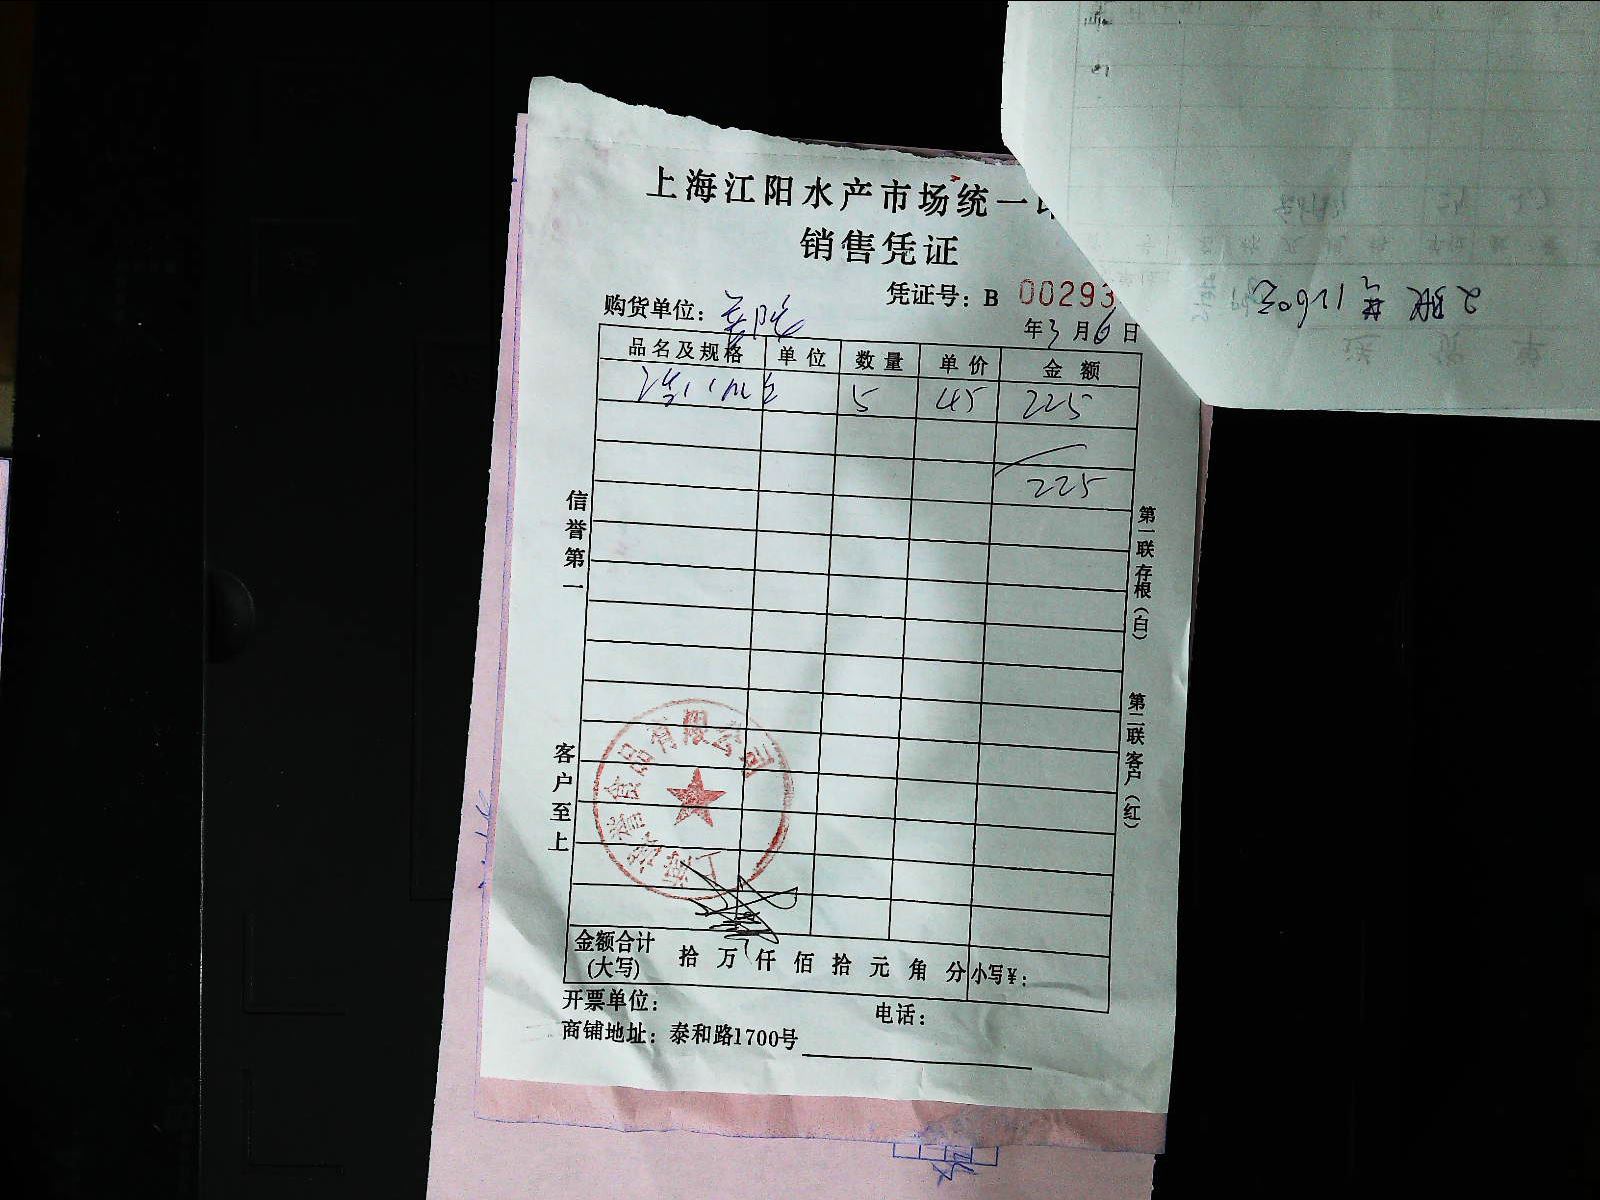 上海江阳水产市场统一
销售凭证
凭证号：B 00293
购货单位：
年3月6日
品名及规格 单位 数量 单价 金额
5 45 225
225
信誉第一
客户至上
第一联存根（白）
第二联客户（红）
食品有限公司
金额合计（大写） 拾万仟佰拾元角分 小写¥：
开票单位： 电话：
商铺地址：泰和路1700号